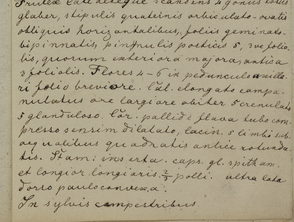 Frutex late alteque scandens 4 gonus totus
glaber, stipulis quaternis orbiculato-ovatis
obliquis horizontalibus, foliis geminato-
bipinnatis, pinnulis posticis 5, vefolio-
lis, quorum exteriora majora, antica
2 foliolis. Flores 4-6 in pedunculo axilla-
ri folio breviore. Cal. elongato campa-
nulatus ore largiore obiter 5 crenulato
5 glanduloso. Cor. pallide flava tubo com-
presso sensim dilatato, lacin. 5 limbi sub-
aequalibus quadratis antice rotunda-
tis. Stam: inserta. caps. gl. spitham.
et longior longiaris 2/3 polli. ultra lata
dorso paulo convexa.
In sylvis campestribus